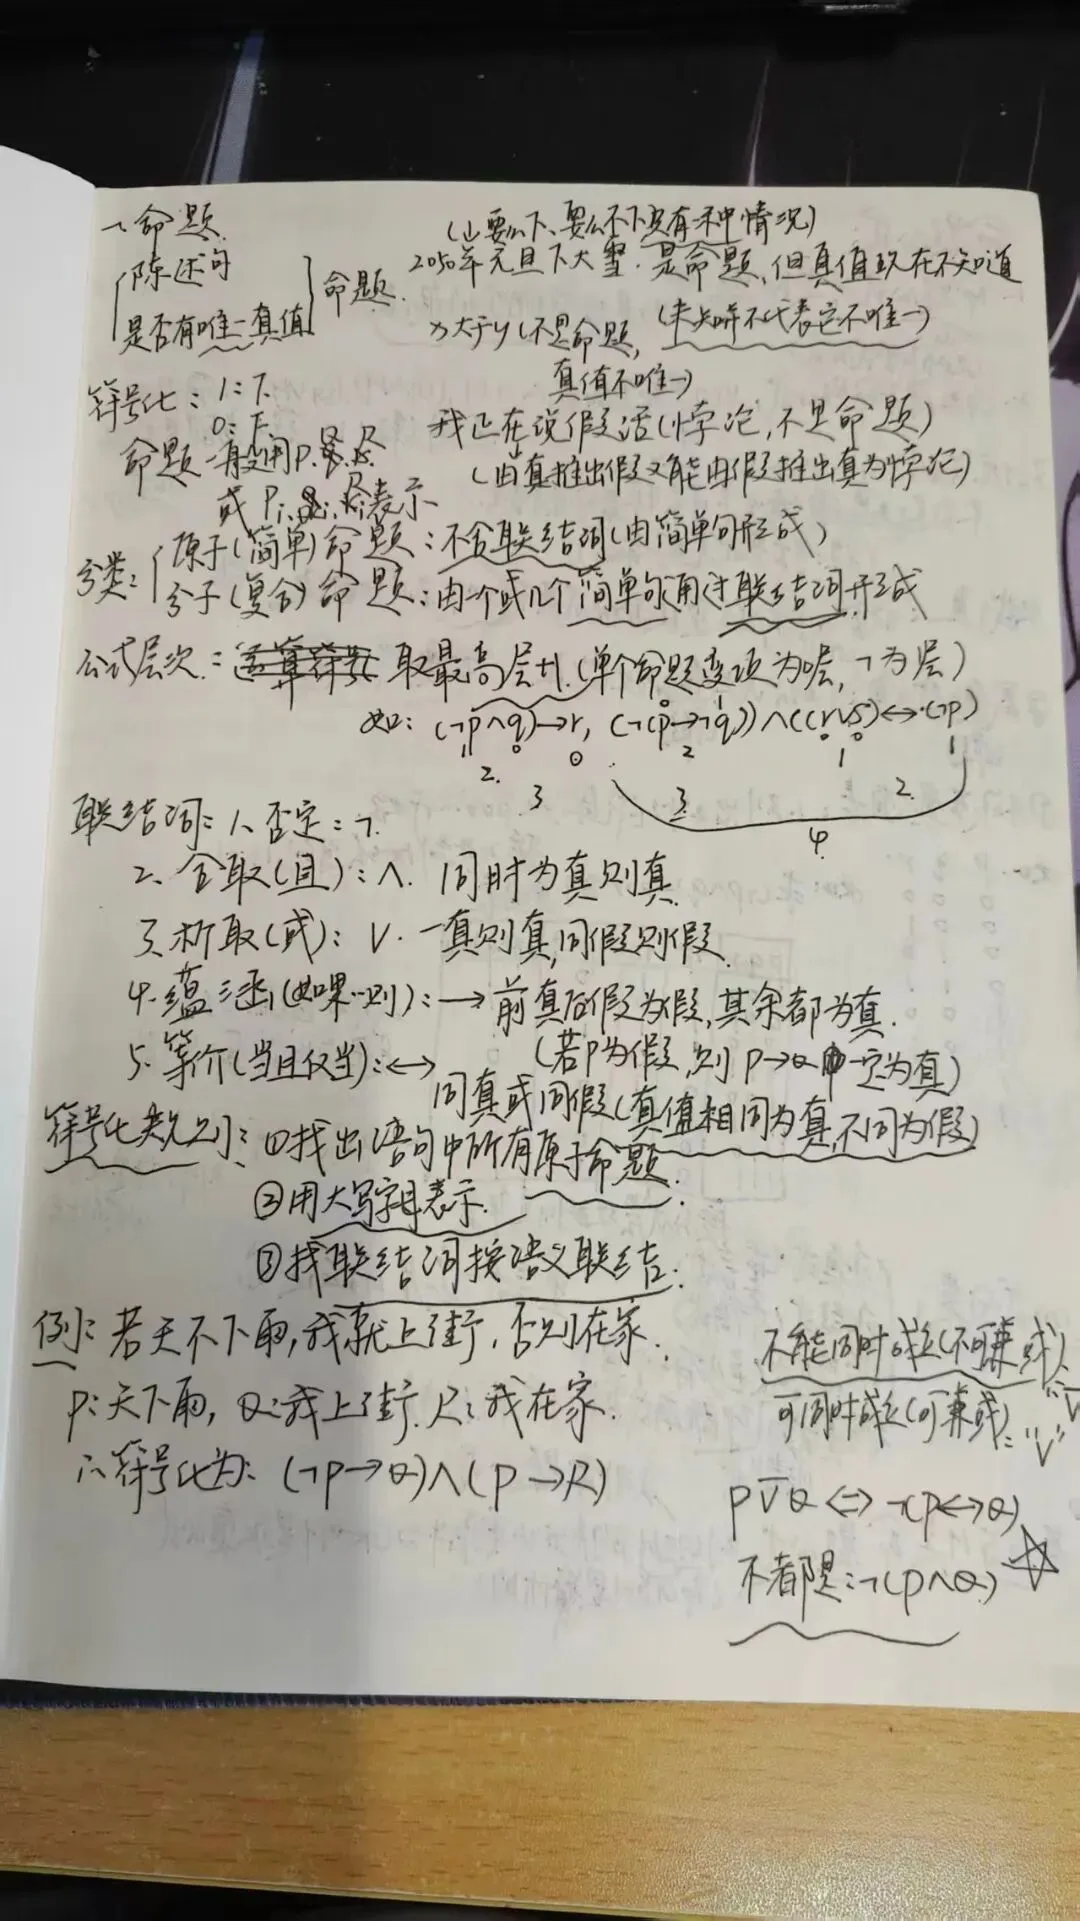 一、命题
陈述句
是否有唯一真值
命题.
(要么下、要么不下只有两种情况)
2050年元旦下大雪.是命题,但真值现在不知道
x大于y(不是命题,
(未知并不代表它不唯一)
真值不唯一)
我正在说假话(悖论,不是命题)
(由真推出假又能由假推出真为悖论)
符号化:1:T.
0:F
命题一般用P.Q.R.
或Pi.Qi.Ri表示
分类:
原子(简单)命题:不含联结词(由简单句形成)
分子(复合)命题:由一个或几个简单句通过联结词形成
公式层次: 取最高层+1.(单个命题变项为0层,¬为1层)
如:(¬p∧q)→r, (¬(p→¬q))∧((r∨s)↔(¬p)
1 0 0 0 1 0 0 1
2. 0 2 1
3 3 2
4
联结词:1、否定:¬.
2、合取(且):∧. 同时为真则真
3、析取(或):∨. 一真则真,同假则假.
4.蕴涵(如果…则):→前真后假为假,其余都为真.
(若P为假,则P→Q一定为真)
5.等价(当且仅当):↔
同真或同假(真值相同为真,不同为假)
符号化规则:①找出语句中所有原子命题.
②用大写字母表示.
③找联结词按语义联结.
例:若天不下雨,我就上街,否则在家.
P:天下雨, Q:我上街. R:我在家.
∴符号化为:(¬P→Q)∧(P→R)
不能同时成立(不可兼或):"⊽"
可同时成立(可兼或):"∨"
P⊽Q⇔¬(P↔Q)
不都是:¬(P∧Q)